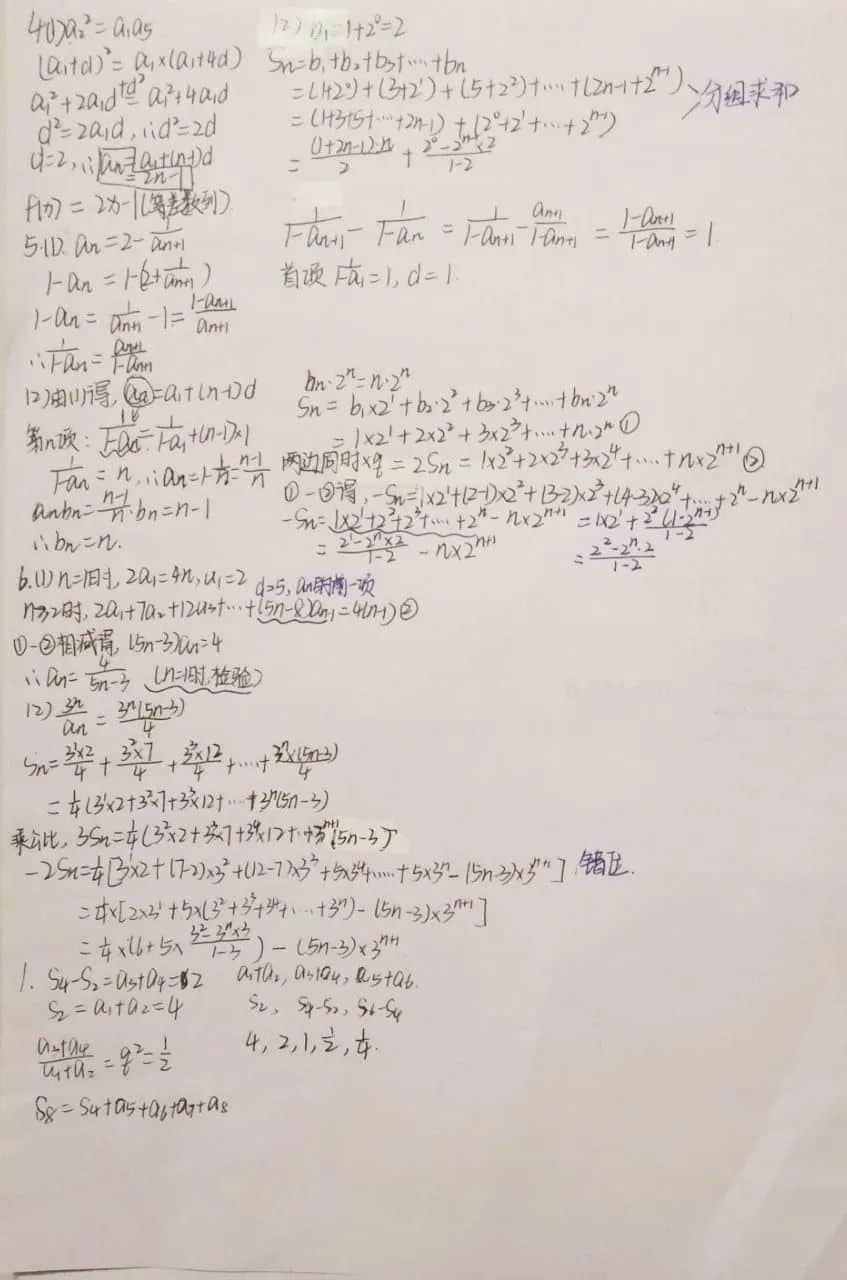 4(1) a₂² = a₁a₅
(a₁+d)² = a₁×(a₁+4d)
a₁²+2a₁d+d² = a₁²+4a₁d
d²=2a₁d, ∴d²=2d
d=2, ∴an=a₁+(n-1)d
=2n-1
f(x) = 2x-1(等差数列)
(2) b₁=1+2⁰=2
Sn=b₁+b₂+b₃+…+bn
=(1+2⁰)+(3+2¹)+(5+2²)+…+(2n-1+2ⁿ⁻¹)
=(1+3+5+…+2n-1)+(2⁰+2¹+…+2ⁿ⁻¹)
分组求和
=(1+2n-1)·n/2 + (2⁰-2ⁿ⁻¹×2)/(1-2)
5.(1). an=2-1/an+1
1-an = 1-(2+1/an+1)
1-an = 1/an+1 -1 = (1-an+1)/an+1
∴1/(1-an) = an+1/(1-an+1)
1/(1-an+1) - 1/(1-an) = 1/(1-an+1) - an+1/(1-an+1) = (1-an+1)/(1-an+1) = 1.
首项 1/(1-a₁)=1, d=1.
(2)由(1)得, an=a₁+(n-1)d
第n项: 1/(1-an)=1/(1-a₁)+(n-1)×1
1/(1-an)=n, ∴an=1-1/n=(n-1)/n
anbn=(n-1)/n·bn=n-1
∴bn=n.
bn·2ⁿ=n·2ⁿ
Sn=b₁×2¹+b₂·2²+b₃·2³+…+bn·2ⁿ
=1×2¹+2×2²+3×2³+…+n·2ⁿ ①
两边同时×q=2Sn=1×2²+2×2³+3×2⁴+…+n×2ⁿ⁺¹ ②
①-②得, -Sn=1×2¹+(2-1)×2²+(3-2)×2³+(4-3)×2⁴+…+2ⁿ-n×2ⁿ⁺¹
-Sn=1×2¹+2²+2³+…+2ⁿ-n×2ⁿ⁺¹ =1×2¹+2²(1-2ⁿ⁻¹)/(1-2)
=(2¹-2ⁿ×2)/(1-2) -n×2ⁿ⁺¹ =(2²-2ⁿ·2)/(1-2)
6.(1)n=1时, 2a₁=4n, a₁=2 d=5, an的前一项
n≥2时, 2a₁+7a₂+12a₃+…+(5n-8)an-1=4(n-1)②
①-②相减得, (5n-3)an=4
∴an=4/(5n-3) (n=1时,检验)
(2) 3ⁿ/an = 3ⁿ(5n-3)/4
Sn=3¹×2/4 + 3²×7/4 + 3³×12/4 +…+ 3ⁿ×(5n-3)/4
=1/4(3¹×2+3²×7+3³×12+…+3ⁿ(5n-3)
乘公比, 3Sn=1/4(3²×2+3³×7+3⁴×12+…+3ⁿ⁺¹(5n-3)
-2Sn=1/4[3¹×2+(7-2)×3²+(12-7)×3³+5×3⁴+…+5×3ⁿ-(5n-3)×3ⁿ⁺¹] 错位.
=1/4×[2×3¹+5×(3²+3³+3⁴+…+3ⁿ)-(5n-3)×3ⁿ⁺¹]
=1/4×(6+5×(3²-3ⁿ×3)/(1-3))-(5n-3)×3ⁿ⁺¹
1. S₄-S₂=a₃+a₄=2 a₁+a₂, a₃+a₄, a₅+a₆.
S₂=a₁+a₂=4 S₂, S₄-S₂, S₆-S₄
(a₃+a₄)/(a₁+a₂)=q²=1/2 4, 2, 1, 1/2, 1/4.
S₈=S₄+a₅+a₆+a₇+a₈